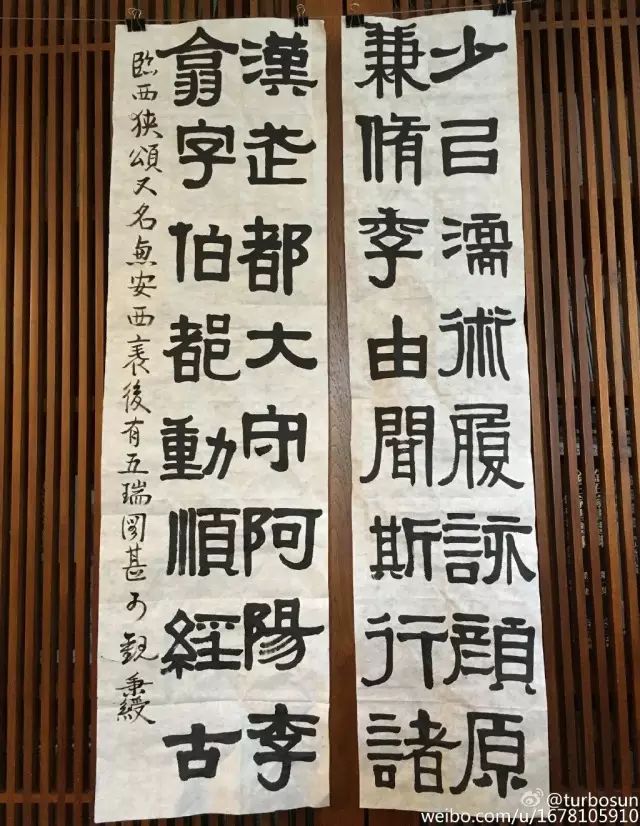 少㠯濡術履詠顔原
兼脩季由聞斯行諸
漢武都大守阿陽李
翕字伯都動順經古
臨西狹頌又名惠安西表後有五瑞圖甚可觀 秉綬
@turbosun
weibo.com/u/1678105910